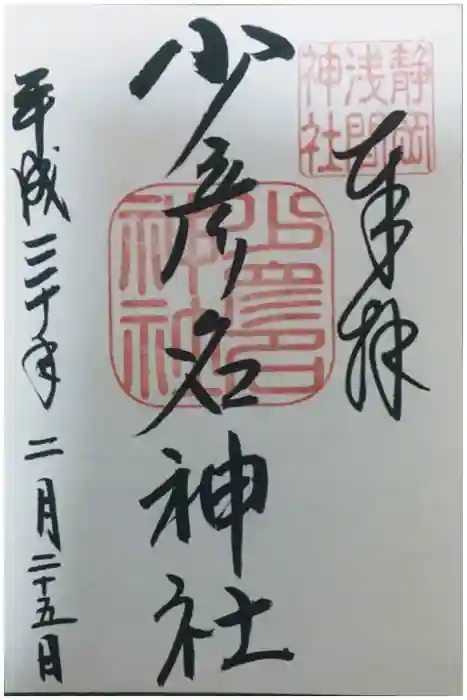 奉拝
静岡
浅間
神社
少彦名神社
少彦名
神社
平成三十年二月二十五日